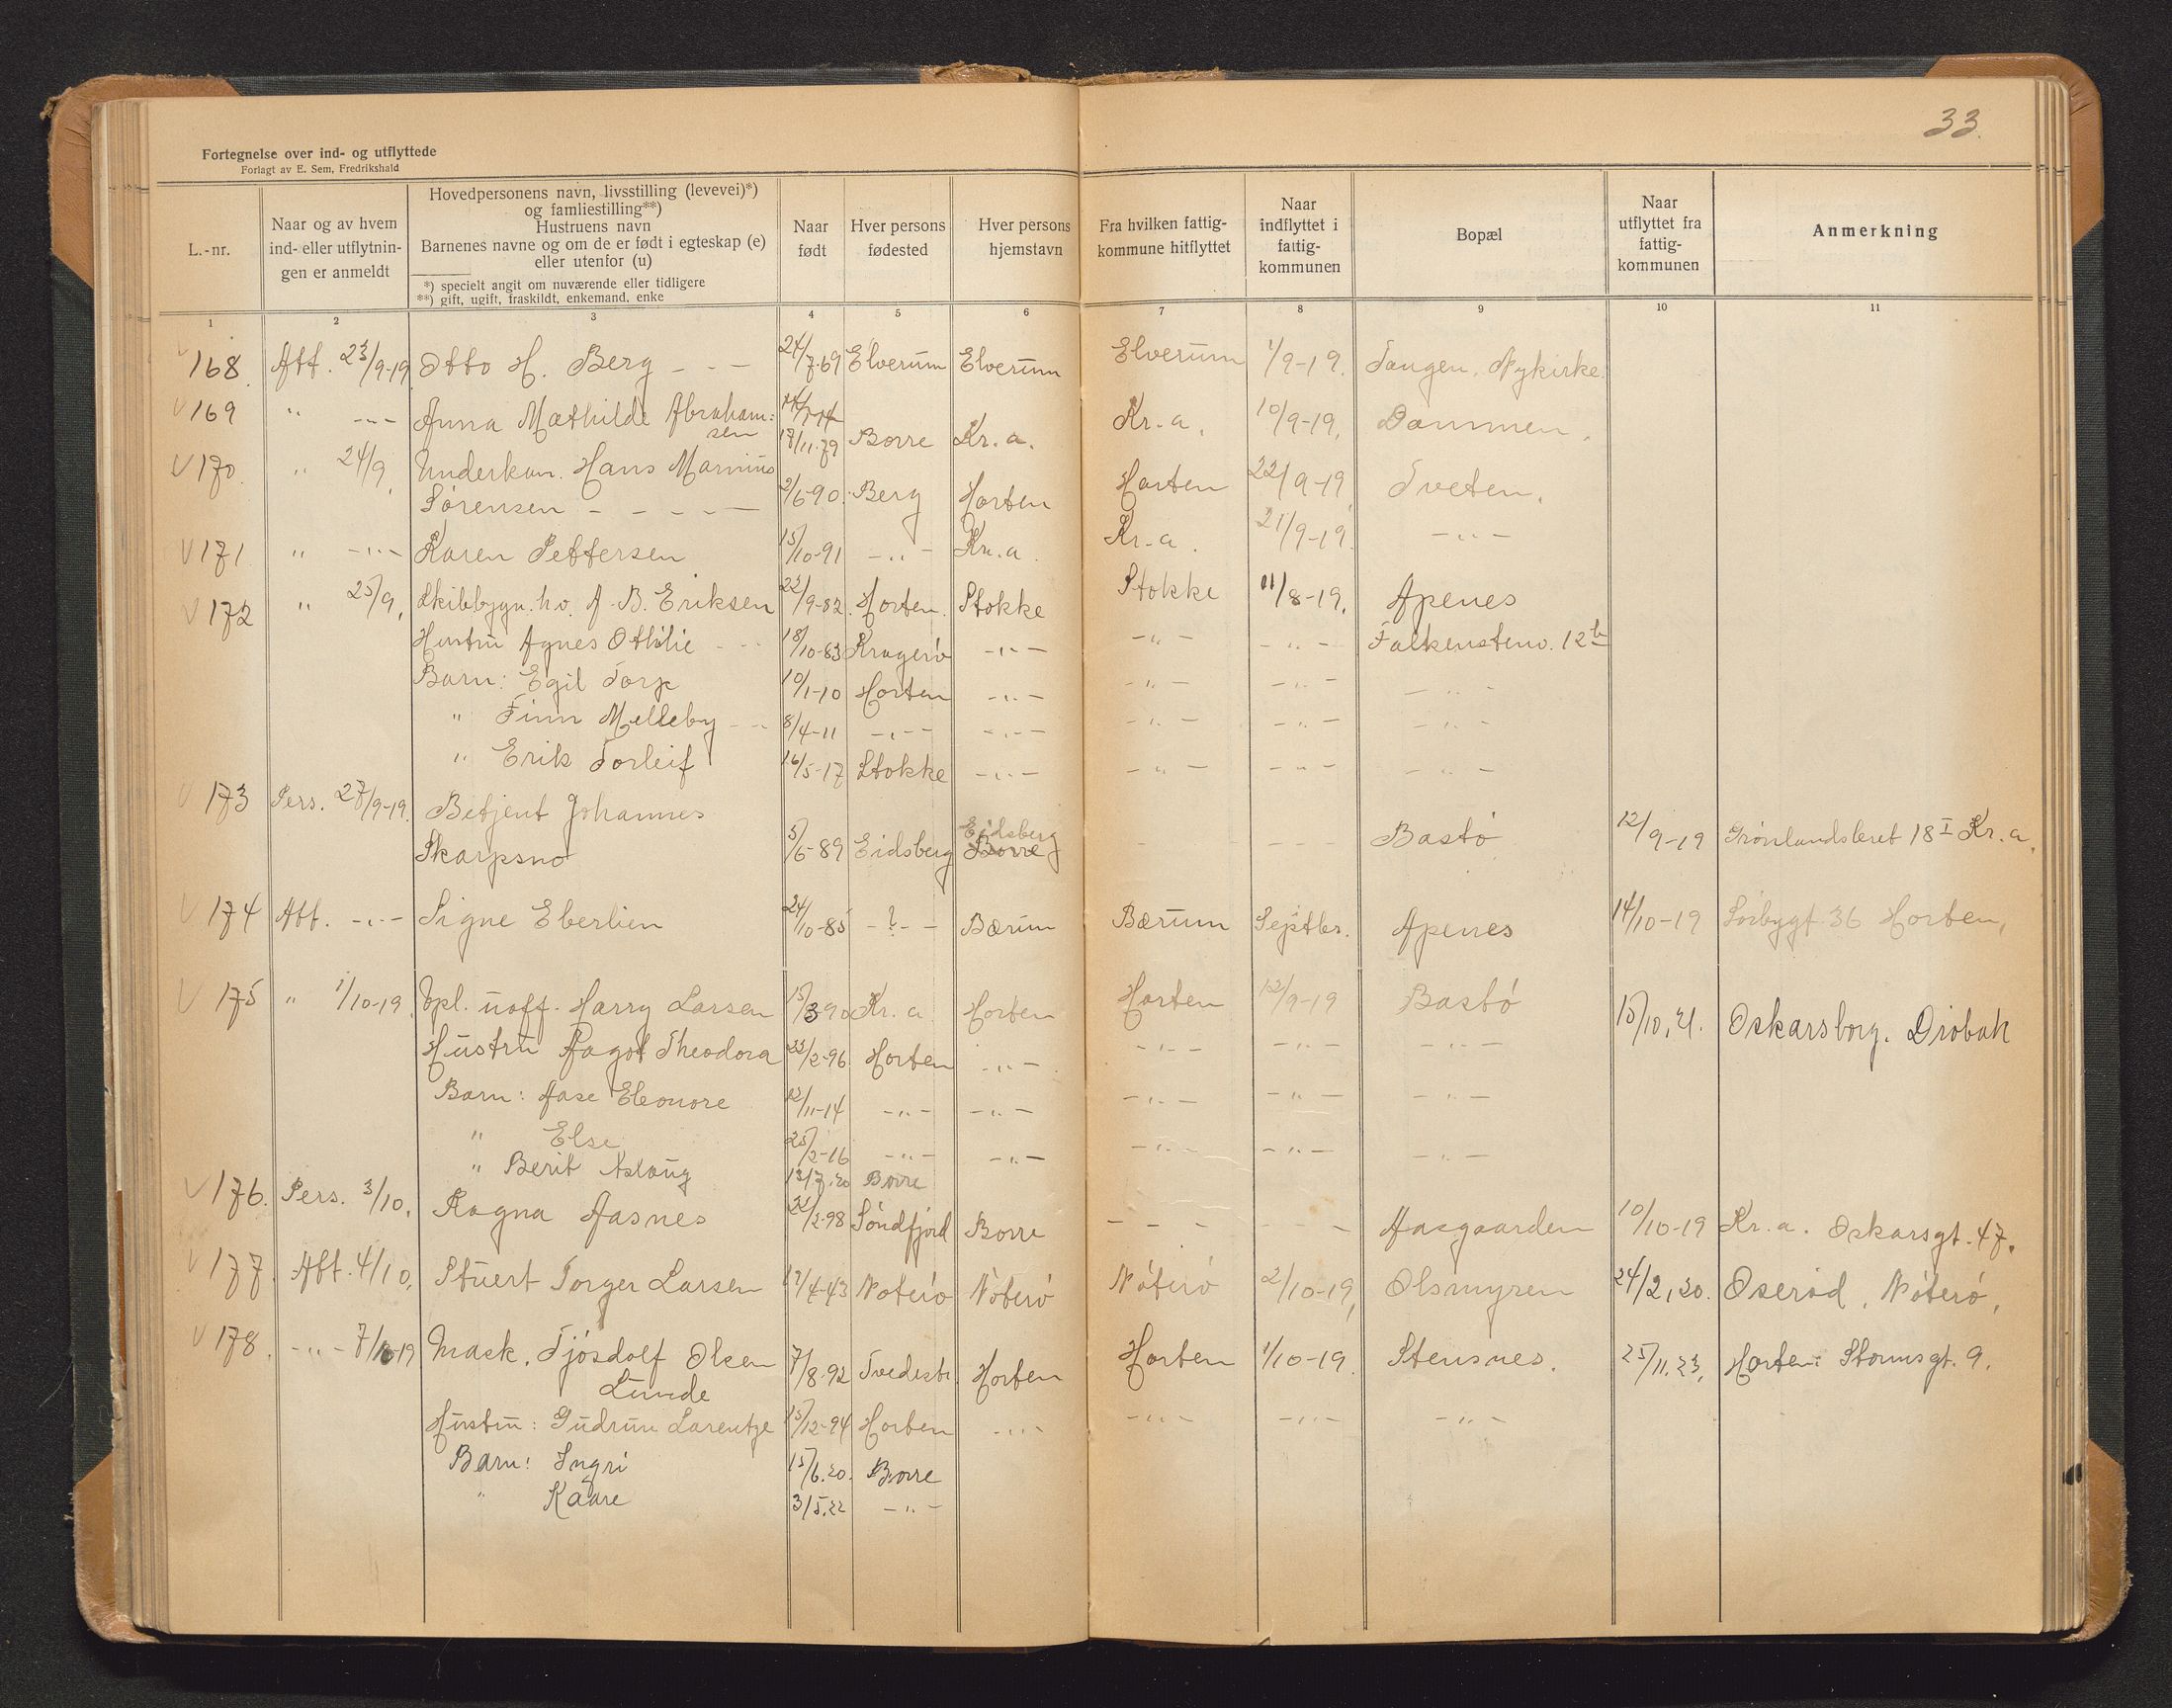 33.
Fortegnelse over ind- og utflyttede
Forlagt av E. Sem, Fredrikshald
L.-nr.
Naar og av hvem
ind- eller utflytnin-
gen er anmeldt
Hovedpersonens navn, livsstilling (levevei)*)
og famliestilling**)
Hustruens navn
Barnenes navne og om de er født i egteskap (e)
eller utenfor (u)
*) specielt angit om nuværende eller tidligere
**) gift, ugift, fraskildt, enkemand, enke
Naar
født
Hver persons
fødested
Hver persons
hjemstavn
Fra hvilken fattig-
kommune hitflyttet
Naar
indflyttet i
fattig-
kommunen
Bopæl
Naar
utflyttet fra
fattig-
kommunen
Anmerkning
1 2 3 4 5 6 7 8 9 10 11
168. Att. 23/9-19 Otto H. Berg - - - 24/7-69 Elverum Elverum Elverum 1/9-19. Tangen. Nykirke.
169 " -"- Anna Mathilde Abraham:
sen 17/11-79 Borre Kr.a. Kr.a. 10/9-19. Dammen.
170. " 24/9. Underkan. Hans Marinius
Sørensen - - - - - 2/6-90. Berg Horten Horten 22/9-19 Tveten.
171 " -"- Karen Pettersen 15/10-91 -"- Kr.a. Kr.a. 21/9-19. -"-
172 " 25/9. Skibbygn. h.v. A. B. Eriksen 22/9-82. Horten. Stokke Stokke 11/8-19. Apenes
Hustru Agnes Othilie - - 18/10-83 Kragerø -"- -"- -"- Falkenstenv. 12b
Barn: Egil Torp 10/1-10 Horten -"- -"- -"- -"-
" Finn Melleby - - 8/4-11 -"- -"- -"- -"- -"-
" Erik Torleif 16/5-17 Stokke -"- -"- -"- -"-
173 Pers. 27/9-19. Betjent Johannes
Eidsberg
Skarpsno 5/6-89 Eidsberg Borre - - - - Bastø 12/9-19 Grønlandsleret 18 I Kr.a.
174 Att. -"- Signe Eberlien 24/10-85 -?- Bærum Bærum Septbr. Apenes 14/10-19 Sørbygt 36 Horten,
175 " 1/10-19. Vpl. uoff. Harry Larsen 15/3-90 Kr.a Horten Horten 12/9-19 Bastø 15/10.21. Oskarsborg. Drøbak
Hustru Aagot Theodora 23/2-96 Horten -"- -"- -"- -"-
Barn: Aase Eleonore 12/11-14 -"- -"- -"- -"- -"-
" Else 25/2-16 -"- -"- -"- -"- -"-
" Berit Aslaug 13/7.20 Borre
176. Pers. 3/10. Ragna Aasnes 22/2-98 Søndfjord Borre - - - - - - Aasgaarden 10/10-19 Kr.a. Oskarsgt. 47.
177. Att. 4/10. Stuert Torger Larsen 17/4-43 Nøterø Nøterø Nøterø 2/10-19, Olsmyren 24/2.20. Oserød, Nøterø,
178. -"- 7/10-19 Mask. Tjøsdolf Olsen
Lunde 7/8-92 Tvedestr. Horten Horten 1/10-19. Stensnes. 25/11.23. Horten: Stormsgt. 9.
Hustru: Gudrun Larentze 15/12-94 Horten -"- -"- -"- -"-
Barn: Ingri 15/6.20. Borre
" Kaare 3/5.22 -"-